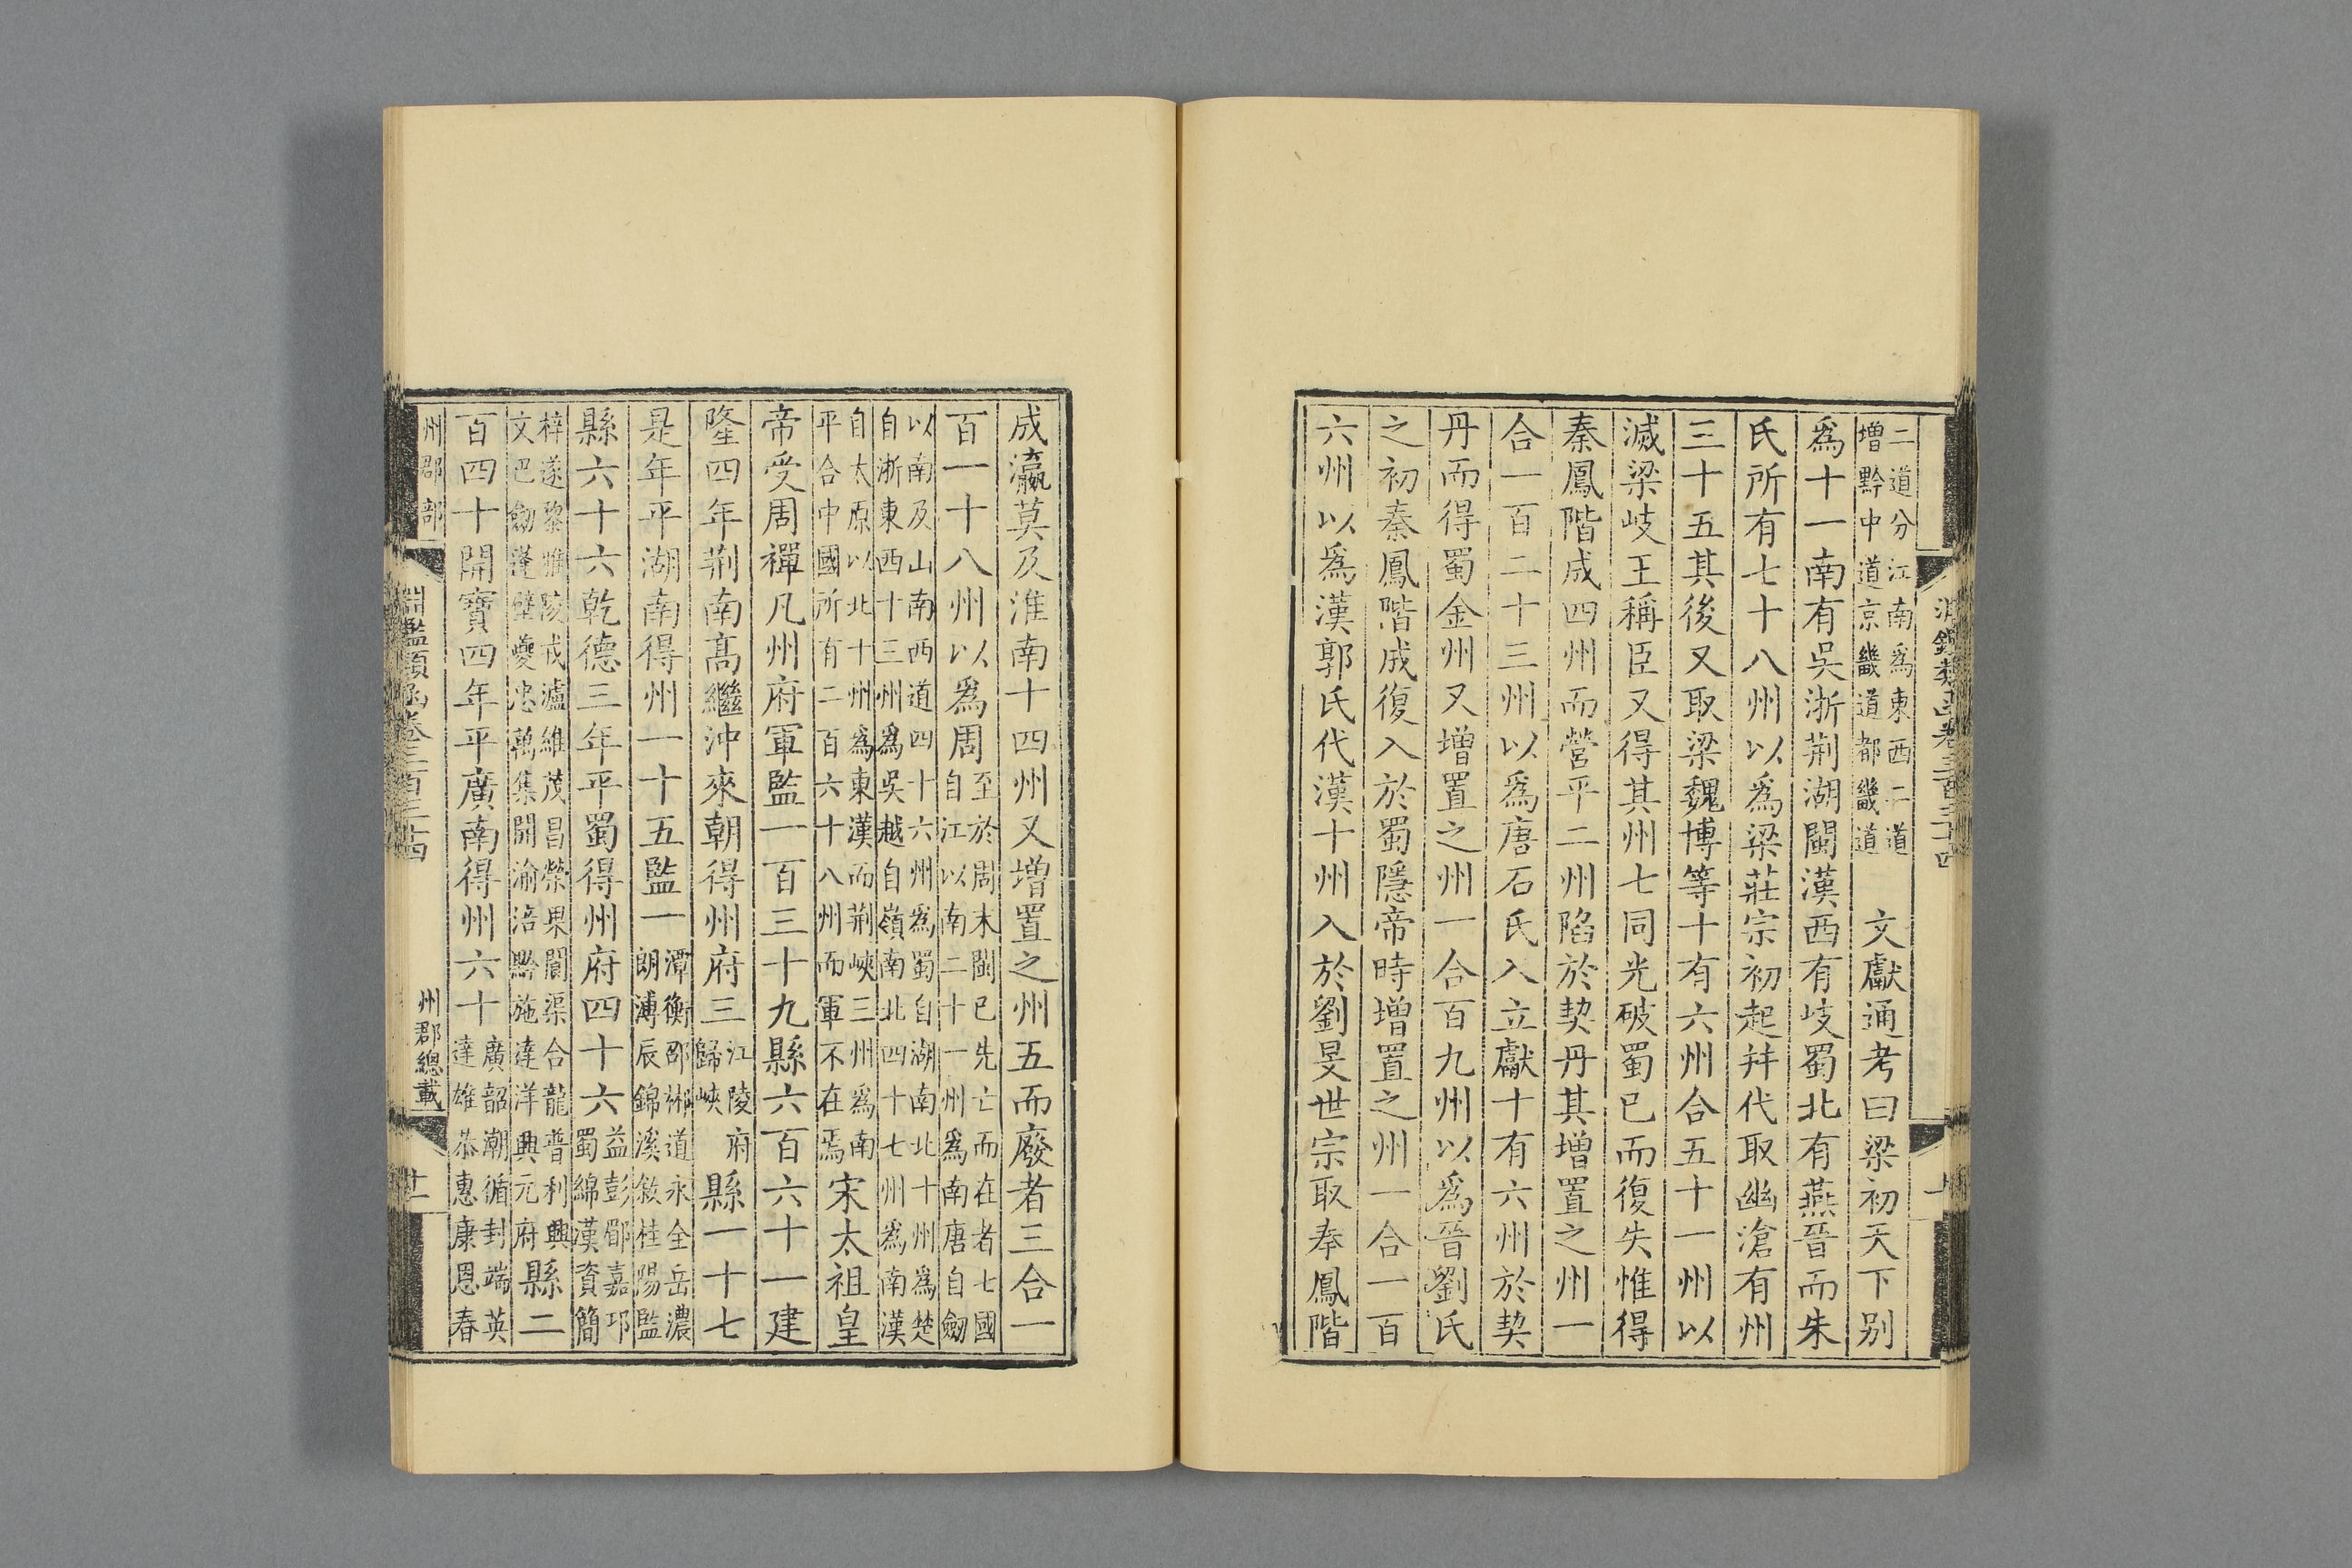 淵鑑類函卷三百三十四
二道分江南爲東西二道
增黔中道京畿道都畿道
文獻通考曰梁初天下别
爲十一南有吳浙荆湖閩漢西有岐蜀北有燕晉而朱
氏所有七十八州以爲梁莊宗初起幷代取幽滄有州
三十五其後又取梁魏博等十有六州合五十一州以
滅梁岐王稱臣又得其州七同光破蜀已而復失惟得
秦鳳階成四州而營平二州陷於契丹其增置之州一
合一百二十三州以爲唐石氏入立獻十有六州於契
丹而得蜀金州又增置之州一合百九州以爲晉劉氏
之初秦鳳階成復入於蜀隱帝時增置之州一合一百
六州以爲漢郭氏代漢十州入於劉旻世宗取奉鳳階
成瀛莫及淮南十四州又增置之州五而廢者三合一
百一十八州以爲周
至於周末閩已先亡而在者七國
自江以南二十一州爲南唐自劒
以南及山南西道四十六州爲蜀自湖南北十州爲楚
自浙東西十三州爲吳越自嶺南北四十七州爲南漢
自太原以北十州爲東漢而荆峽三州爲南
平合中國所有二百六十八州而軍不在焉
宋太祖皇
帝受周禪凡州府軍監一百三十九縣六百六十一建
隆四年荆南高繼沖來朝得州府三
江陵府
歸峽
縣一十七
是年平湖南得州一十五監一
潭衡邵郴道永全岳濃
朗溥辰錦溪敘桂陽監
縣六十六乾德三年平蜀得州府四十六
益彭郿嘉邛
蜀綿漢資簡
梓遂黎雅陵戎瀘維茂昌榮果閬渠合龍普利興
文巴劒蓬壁夔忠萬集開渝涪黔施達洋興元府
縣二
百四十開寶四年平廣南得州六十
廣韶潮循封端英
達雄恭惠康恩春
州郡部
淵鑑類函卷三百三十四
州郡總載
十一